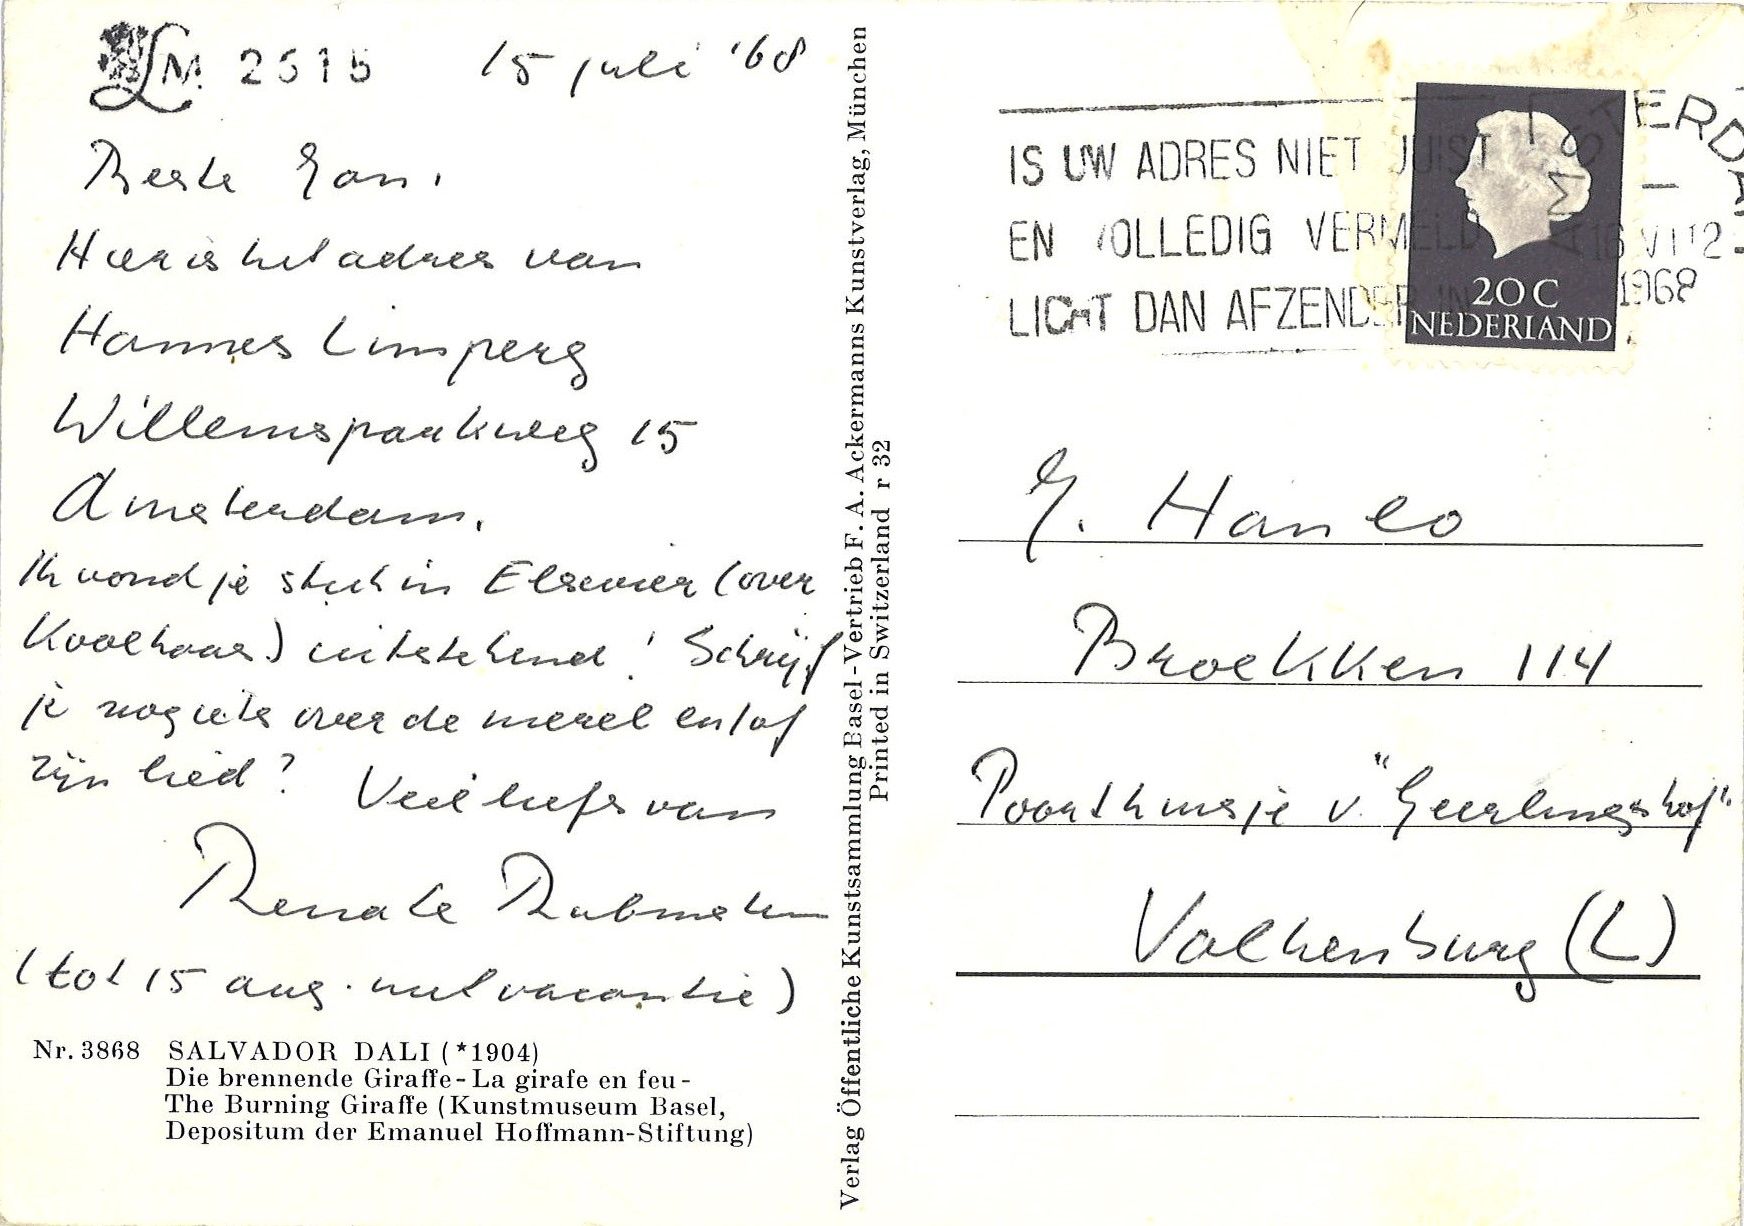 LM. 2615
15 juli '68
Beste Jan.
Hier is het adres van
Hannes Limperg
Willemsparkweg 15
Amsterdam.
Ik vond je stuk in Elsevier (over
Koolhaas) uitstekend! Schrijf
je nog iets over de merel en/of
zijn lied? Veel liefs van
Renate Rubinstein
(tot 15 aug. met vacantie)
Nr. 3868 SALVADOR DALI (*1904)
Die brennende Giraffe - La girafe en feu -
The Burning Giraffe (Kunstmuseum Basel,
Depositum der Emanuel Hoffmann-Stiftung)
Verlag Öffentliche Kunstsammlung Basel - Vertrieb F. A. Ackermanns Kunstverlag, München
Printed in Switzerland r 32
IS UW ADRES NIET JUIST
EN VOLLEDIG VERMELD
LICHT DAN AFZENDER IN
AMSTERDAM
1968
20 C
NEDERLAND
J. Hanlo
Broekkem 114
Poorthuisje v. "Geerlingshof"
Valkenburg (L)